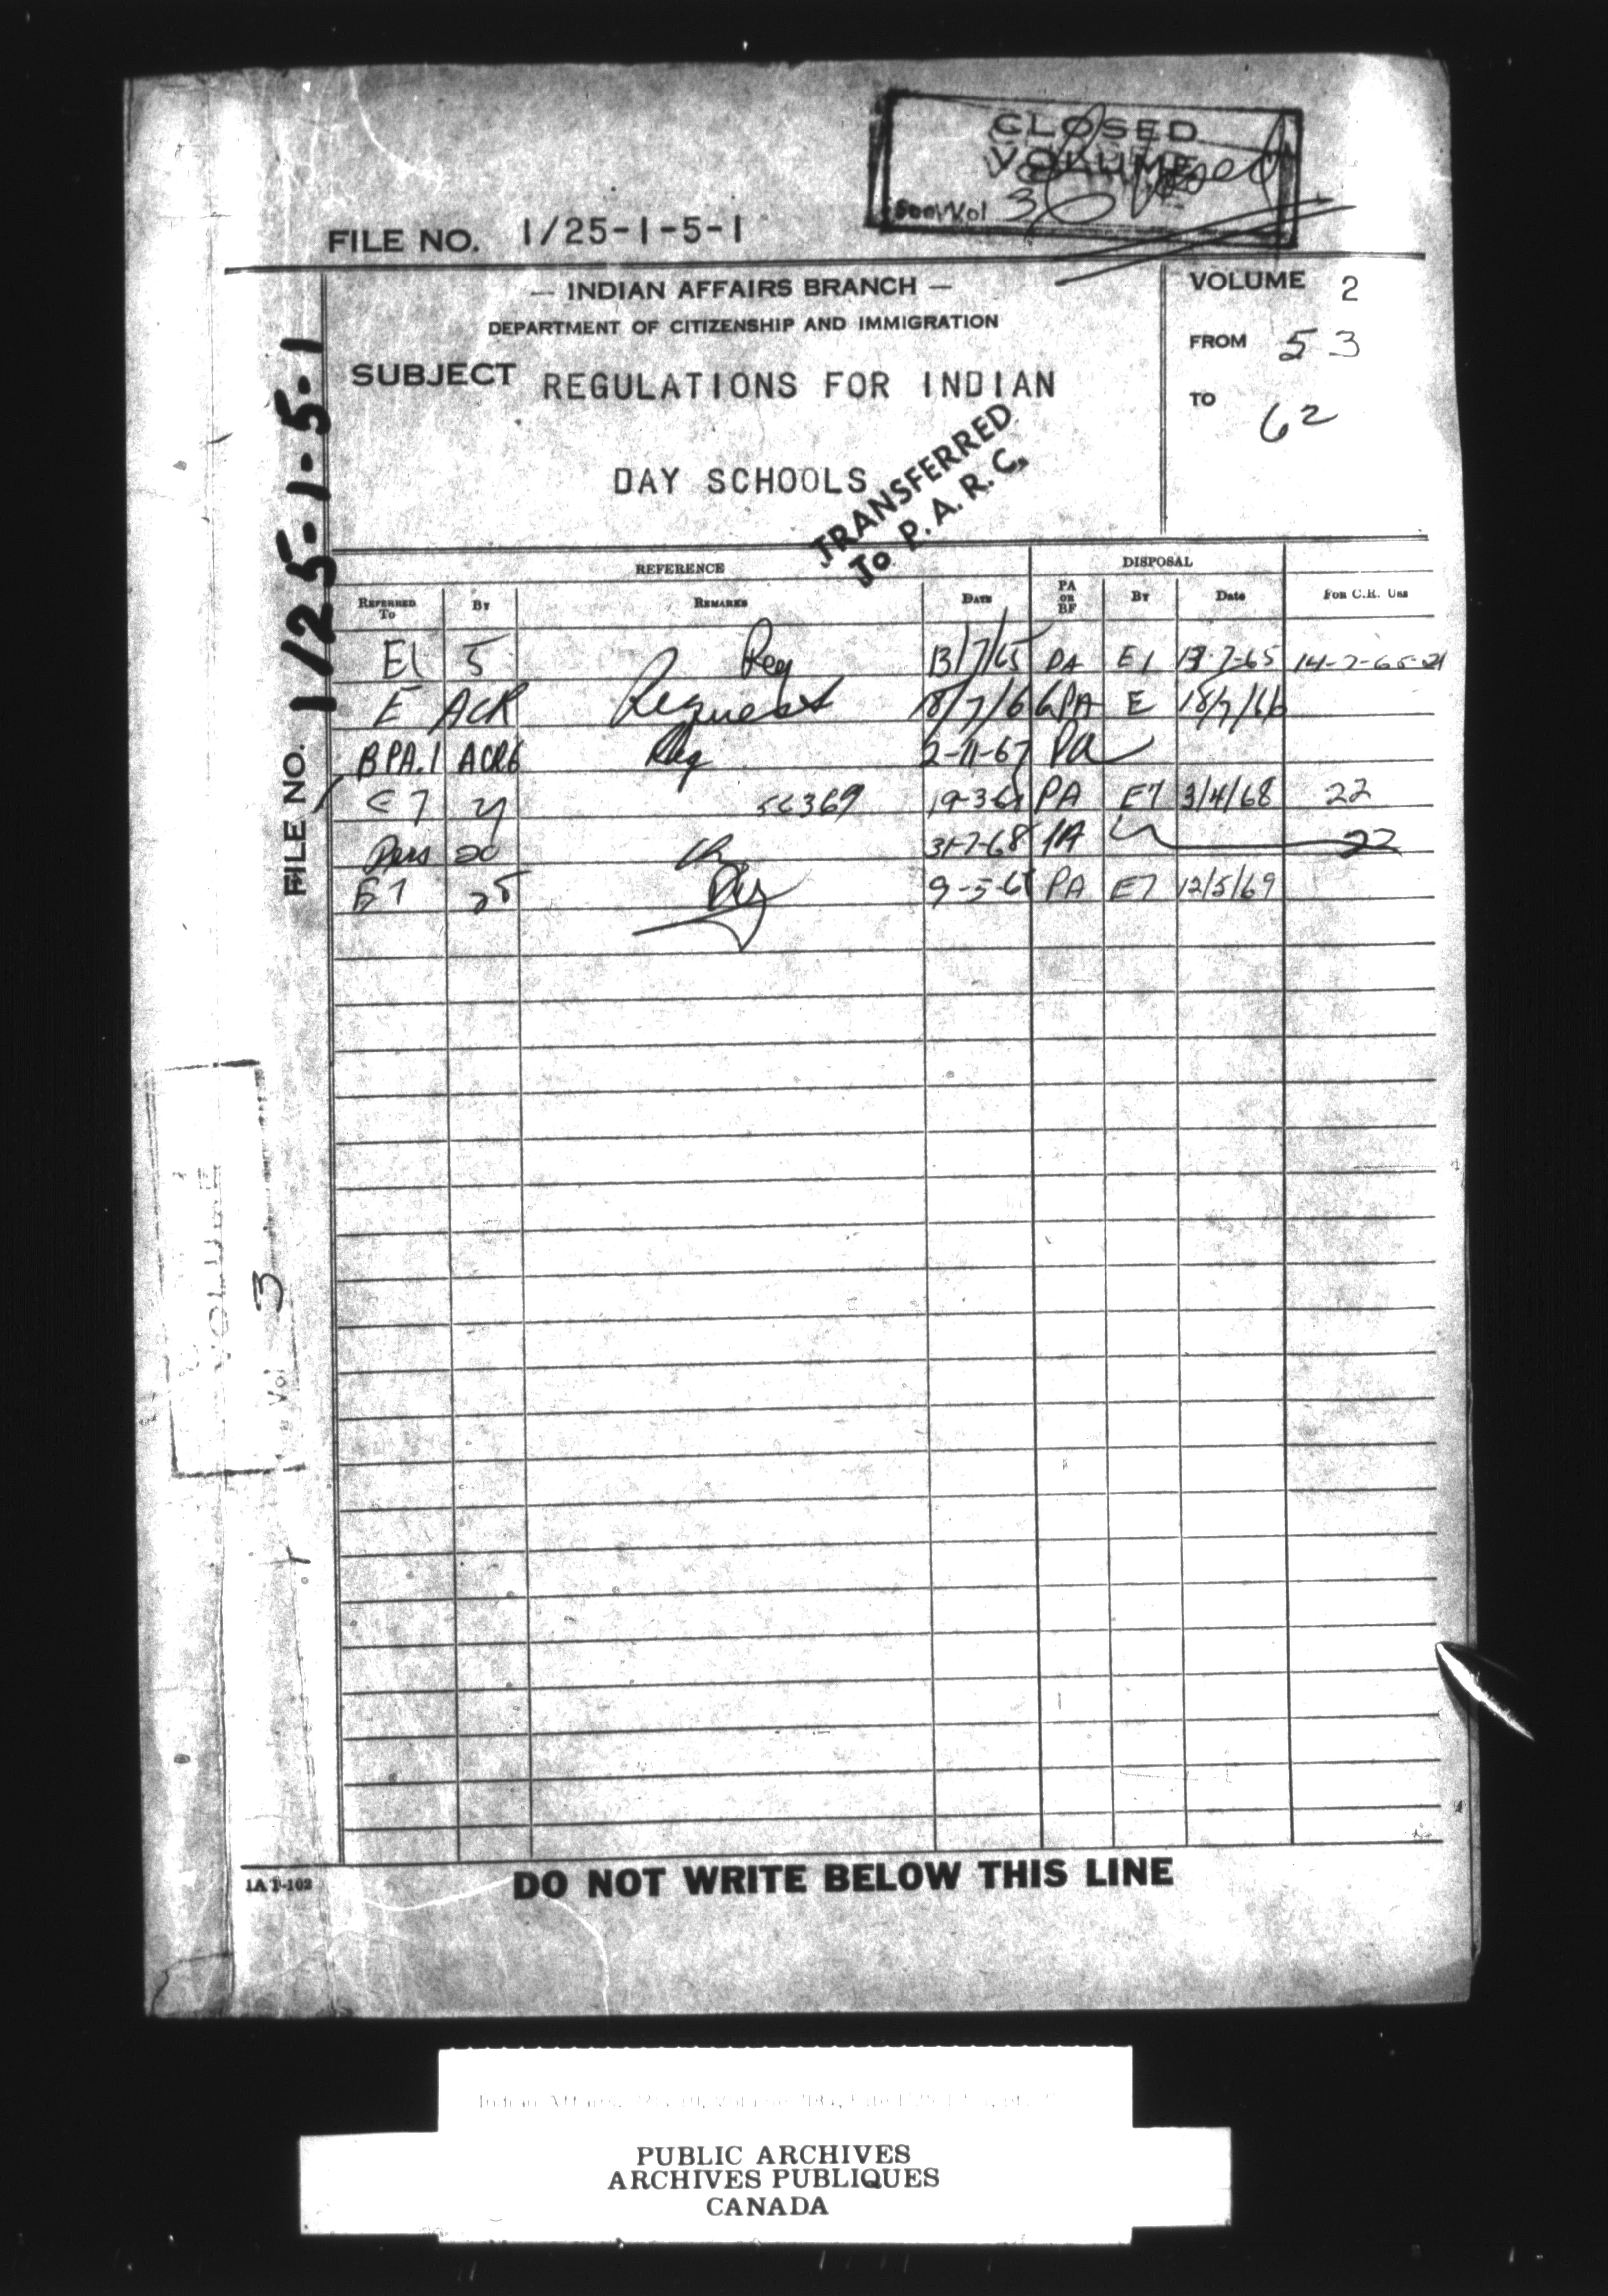 CLOSED
VOLUME
Closed
See Vol 3
FILE NO. 1/25-1-5-1
— INDIAN AFFAIRS BRANCH —
DEPARTMENT OF CITIZENSHIP AND IMMIGRATION
SUBJECT REGULATIONS FOR INDIAN
DAY SCHOOLS
VOLUME 2
FROM 53
TO 62
TRANSFERRED
To P. A. R. C.
FILE NO. 1/25-1-5-1
REFERENCE DISPOSAL
REFERRED TO BY REMARKS DATE PA OR BF BY Date FOR C.R. USE
E1 5 Req 13/7/65 PA E1 13-7-65 14-7-65-21
E ACR Request 18/7/66 PA E 18/7/66
BPA.1 ACR6 Req 2-11-67 PA
E7 56369 19-3-68 PA E7 3/4/68 22
Pers 20 31-7-68 PA 22
E7 25 9-5-69 PA E7 12/5/69
VOLUME
Vol 3
IA 1-102
DO NOT WRITE BELOW THIS LINE
PUBLIC ARCHIVES
ARCHIVES PUBLIQUES
CANADA